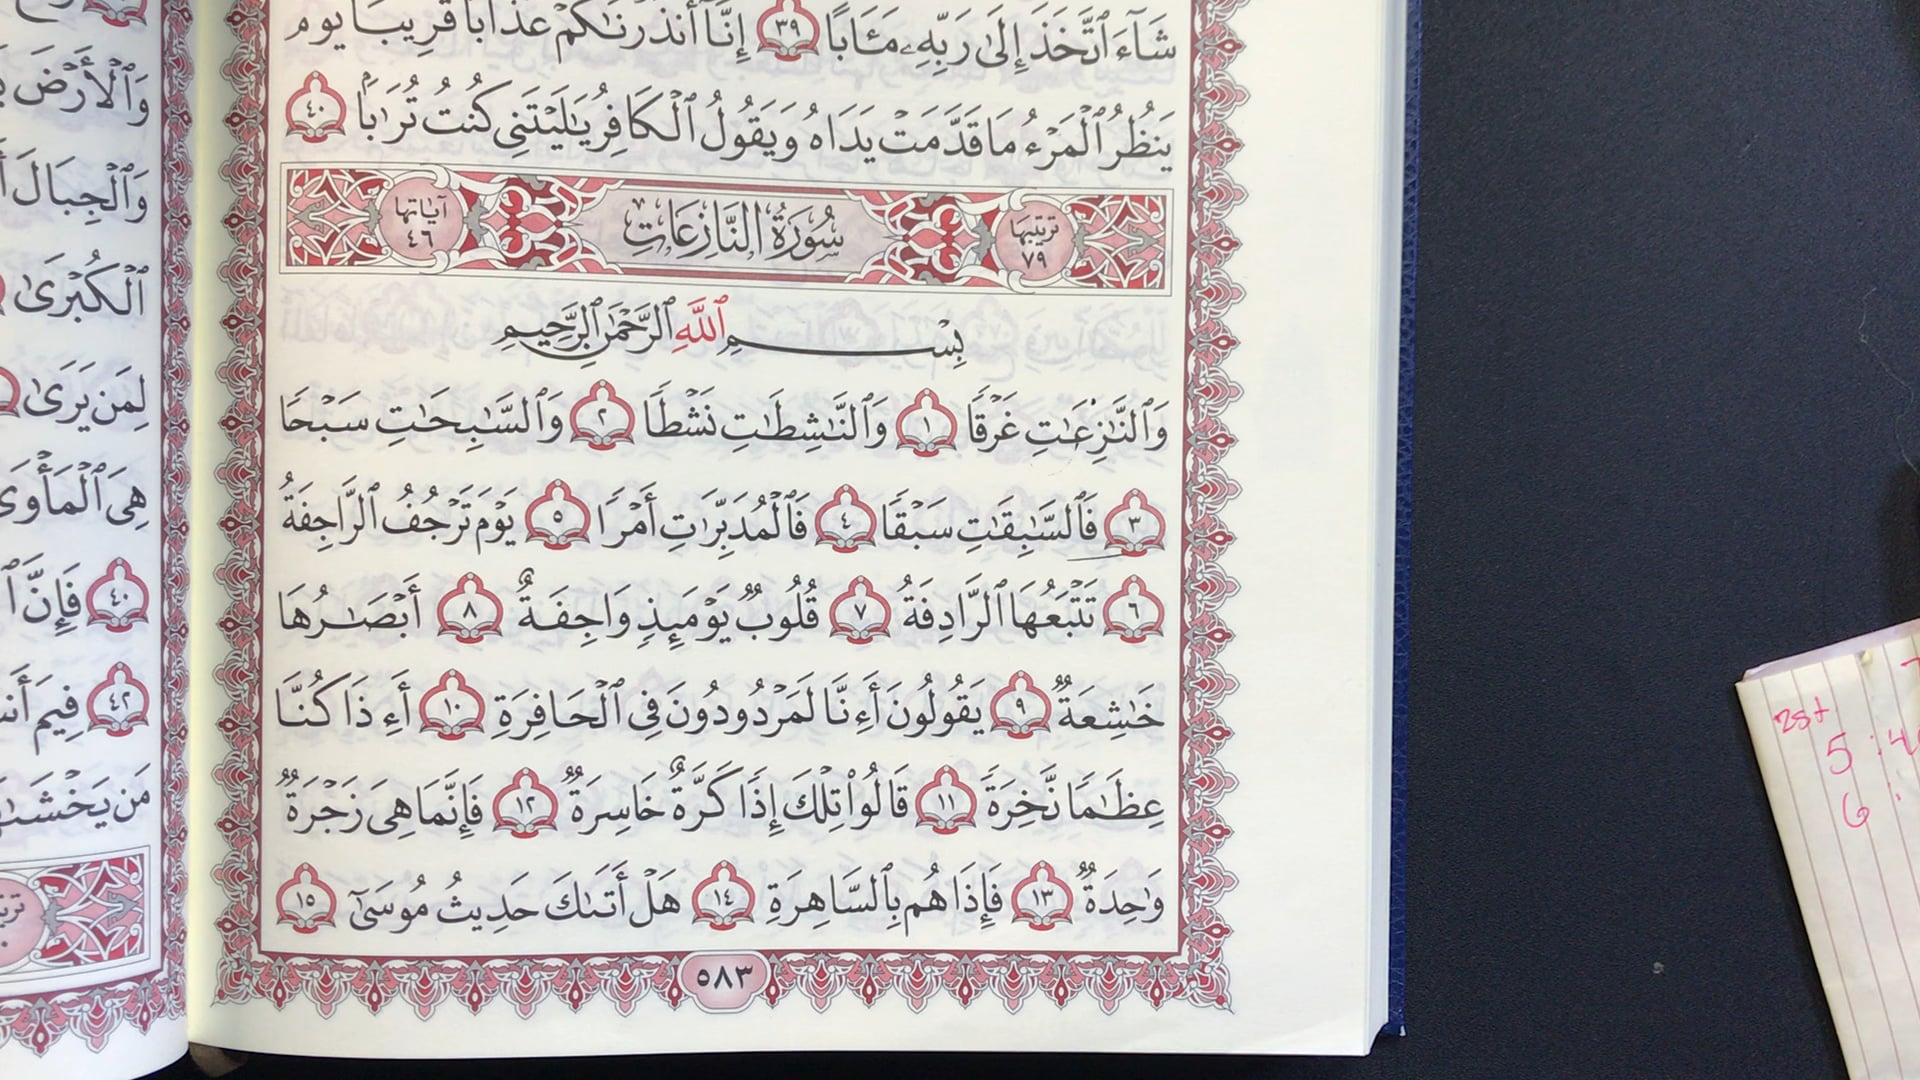 شَآءَ ٱتَّخَذَ إِلَىٰ رَبِّهِۦ مَـَٔابًا ٣٩ إِنَّآ أَنذَرْنَٰكُمْ عَذَابًا قَرِيبًا يَوْمَ
يَنظُرُ ٱلْمَرْءُ مَا قَدَّمَتْ يَدَاهُ وَيَقُولُ ٱلْكَافِرُ يَٰلَيْتَنِى كُنتُ تُرَٰبًۢا ٤٠
ترتيبها ٧٩ سُورَةُ النَّازِعَاتِ آياتها ٤٦
بِسْمِ ٱللَّهِ ٱلرَّحْمَٰنِ ٱلرَّحِيمِ
وَٱلنَّٰزِعَٰتِ غَرْقًا ١ وَٱلنَّٰشِطَٰتِ نَشْطًا ٢ وَٱلسَّٰبِحَٰتِ سَبْحًا
٣ فَٱلسَّٰبِقَٰتِ سَبْقًا ٤ فَٱلْمُدَبِّرَٰتِ أَمْرًا ٥ يَوْمَ تَرْجُفُ ٱلرَّاجِفَةُ
٦ تَتْبَعُهَا ٱلرَّادِفَةُ ٧ قُلُوبٌ يَوْمَئِذٍ وَاجِفَةٌ ٨ أَبْصَٰرُهَا
خَٰشِعَةٌ ٩ يَقُولُونَ أَءِنَّا لَمَرْدُودُونَ فِى ٱلْحَافِرَةِ ١٠ أَءِذَا كُنَّا
عِظَٰمًا نَّخِرَةً ١١ قَالُوا۟ تِلْكَ إِذًا كَرَّةٌ خَاسِرَةٌ ١٢ فَإِنَّمَا هِىَ زَجْرَةٌ
وَٰحِدَةٌ ١٣ فَإِذَا هُم بِٱلسَّاهِرَةِ ١٤ هَلْ أَتَىٰكَ حَدِيثُ مُوسَىٰٓ ١٥
٥٨٣
وَٱلْأَرْضَ
وَٱلْجِبَالَ
ٱلْكُبْرَىٰ
لِمَن يَرَىٰ
هِىَ ٱلْمَأْوَىٰ
٤٠ فَإِنَّ
٤٢ فِيمَ
مَن يَخْشَىٰهَا
5
6